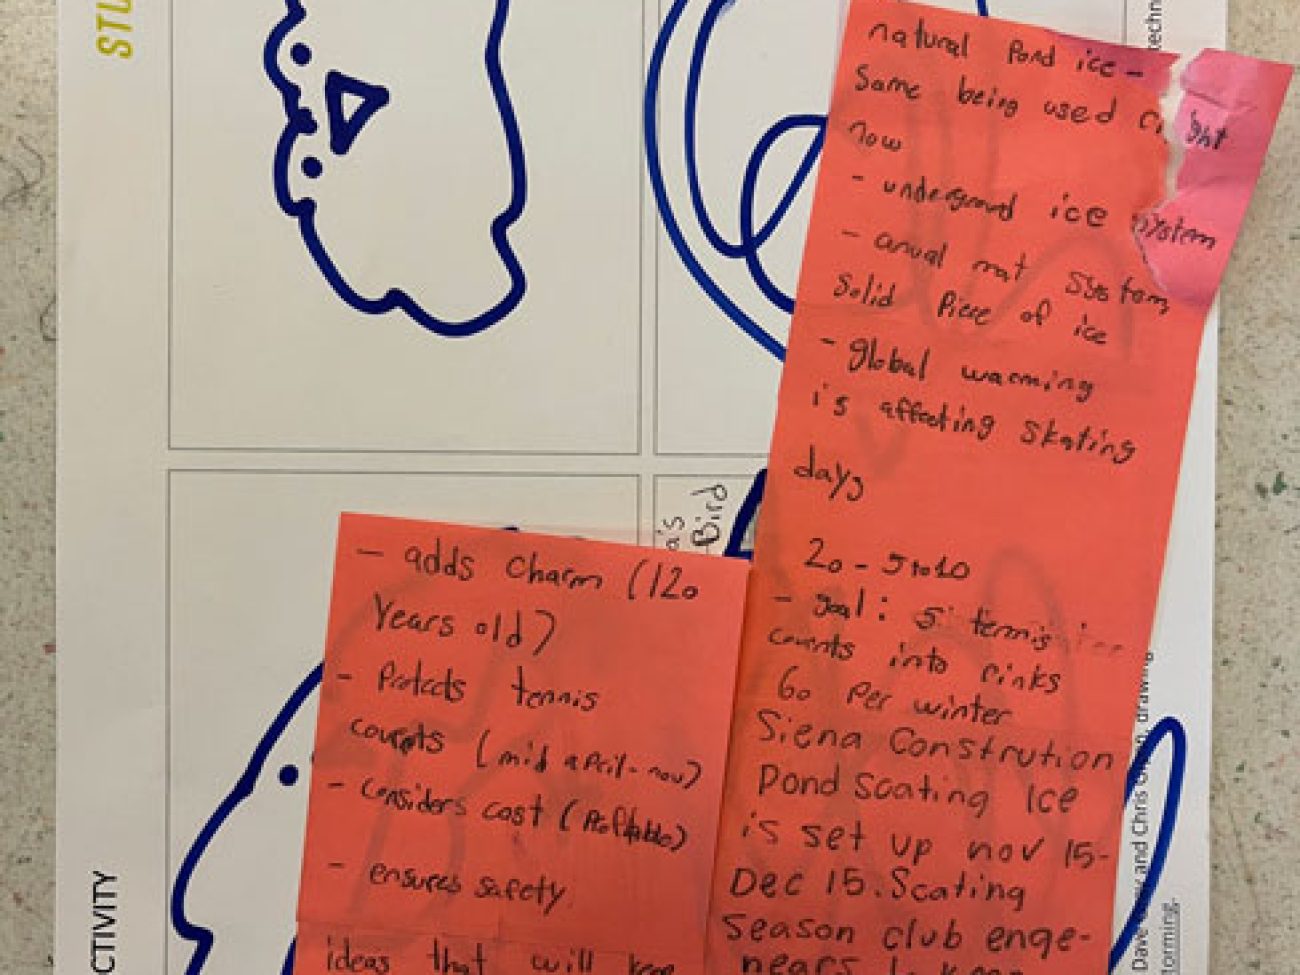 STU
natural Pond ice -
Same being used right
now
- underground ice system
- anual mat System,
Solid Piece of ice
- global warming
is affecting Skating
days
20 - 5 to 10
- goal: 5 tennis
courts into rinks
60 Per winter
Siena Constrution
Pond Scating Ice
is set up nov 15-
Dec 15. Scating
season club enge-
nears
a's
Bird
- adds charm (120
Years old)
- Protects tennis
courts (mid april - nov)
- considers cost (Profitable)
- ensures safety
ideas that will keep
CTIVITY
techn
Dave and Chris drawing
torming.